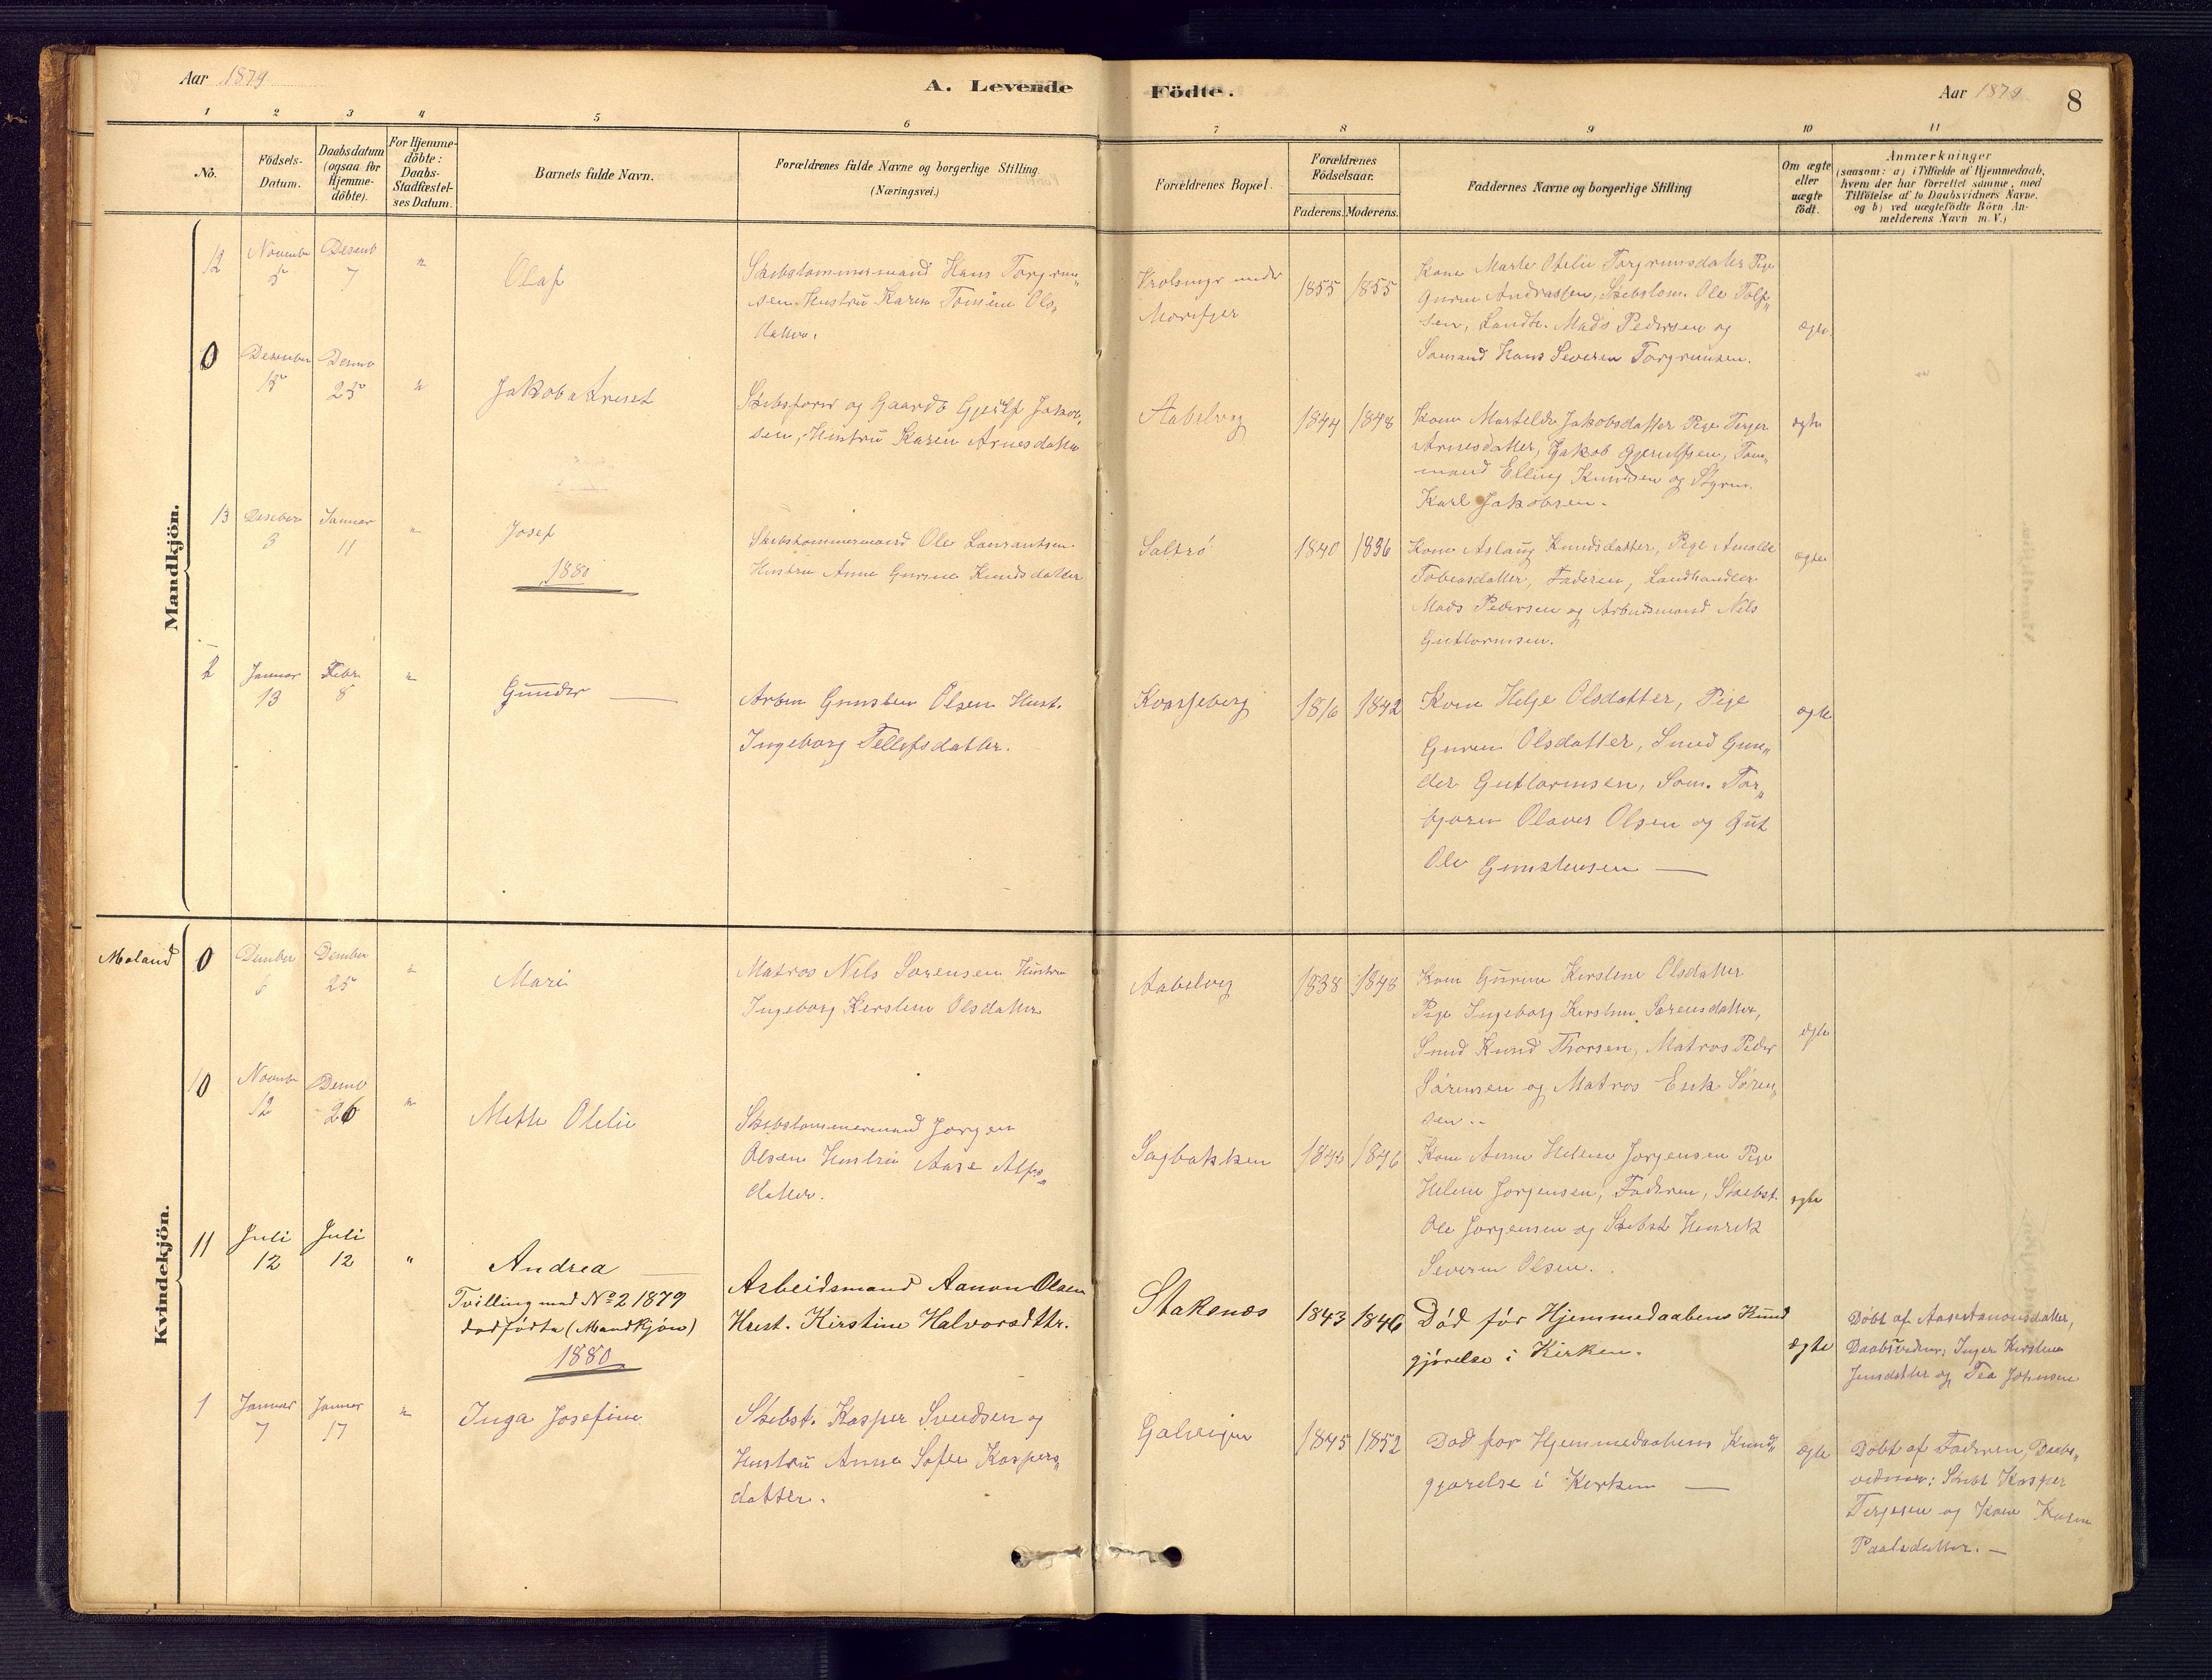 Aar 1879
A. Levende
Födte.
Aar 1879
8
1 2 3 4 5 6
7 8 9 10 11
No.
Födsels-
Datum.
Daabsdatum
(ogsaa for
Hjemme-
döbte).
For Hjemme-
döbte:
Daabs-
Stadfæstel-
ses Datum.
Barnets fulde Navn.
Forældrenes fulde Navne og borgerlige Stilling
(Næringsvei.)
Forældrenes Bopæl.
Forældrenes
Födselsaar.
Faderens. Moderens.
Faddernes Navne og borgerlige Stilling
Om ægte
eller
uægte
födt.
Anmærkninger
(saasom: a) i Tilfælde af Hjemmedaab,
hvem der har forrettet samme, med
Tilföielse af to Daabsvidners Navne,
og b) ved uægtefödte Börn An-
melderens Navn m. V.)
Mandkjön.
12
Novembr
5
Desemb
7
"
Olaf
Skibstømmermand Hans Torgrim„
sen Hustru Karen Tomine Ols„
datter.
under
Morefjer
1855 1855
Kone Marte Otelie Torgrimsdatter Pige
Guren Andrassen, Skibstøm. Ole Tolf„
sen, Landh. Mads Pedersen og
Sømand Hans Severin Torgrimsen.
ægte
0
Desember
15
Desmb
25
"
Jakob
Skibsfører og Gaardb Gjerulf Jakob„
sen, Hustru Karen Arnesdatter
Aabelvog
1844 1848
Kone Martilde Jakobsdatter Pige Terjer
Arnesdatter, Jakob Gjerulfsen, Tøm„
mand Elling Knudsen og Styrm.
Karl Jakobsen.
ægte
13
Deseber
3
Januar
11
"
Josef
1880
Skibstømmermand Ole Laurantsen
Hustru Anne Gurine Knudsdatter
Saltrø
1840 1836
Kone Aslaug Knudsdatter, Pige Amalie
Tobiasdatter, Faderen, Landhandler
Mads Pedersen og Arbeidsmand Nils
Guttormsen.
ægte
2
Januar
13
Febr.
8
"
Gunder —
Arbm Gunsten Olsen Hust.
Ingeborg Tellefsdatter.
Kvasjeberg
1816 1842
Kone Helje Olsdatter, Pige
Guren Olsdatter, Smed Gun„
der Guttormsen, Søm. Tor„
bjørn Olaves Olsen og Gut
Ole Gunstensen —
ægte
Kvindekjön.
Moland
0
Dember
6
Dember
25
"
Mari
Matros Nils Sørensen Hustru
Ingeborg Kirstine Olsdatter
Aabelvog
1838 1848
Kone Guren Kerstine Olsdatter
Pige Ingeborg Kirstine Sørensdatter,
Smed Knud Thorsen, Matros Peder
Sørensen og Matros Erik Søren„
sen..
ægte
10
Novembr
12
Desmb
26
"
Mette Otelie
Skibstømmermand Jørgen
Olsen Hustru Aase Alfs„
datter.
Sagbakken
1846
Kone Anne Helene Jørgensen Pige
Helene Jørgensen, Faderen, Skibst.
Ole Jørgensen og Skibst Henrik
Severin Olsen.
ægte
11
Juli
12
Juli
12
"
Andrea —
Tvilling med No 2 1879
dødfødte (Mandkjøn)
1880
Arbeidsmand Aanon Olsen
Hust. Kirstine Halvorsdttr.
Stakenæs
1843 1846
Død før Hjemmedaabens Kund
gjørelse i Kirken.
ægte
Døbt af Aase Aanonsdatter,
Daabsvidner: Inger Kirstine
Jensdatter og Tea Johnsen
1
Januar
7
Januar
17
"
Inga Josefine
Skibst. Kasper Svendsen og
Hustru Anne Sofie Kaspers„
datter.
1845 1852
Død før Hjemmedaabens Kund„
gjørelse i Kirken —
ægte
Døbt af Faderen, Daabs„
vidner: Skibst Kasper
Terjesen og Kone Karen
Paalsdatter. —